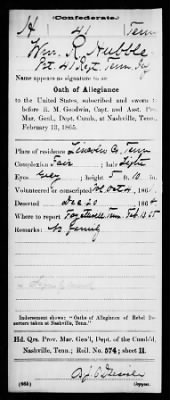 Confederate.
H 41 Tenn
Wm. R. Hubble
Pvt 41 Regt Tenn Inf
Name appears as signature to an
Oath of Allegiance
to the United States, subscribed and sworn to
before R. M. Goodwin, Capt. and Asst. Pro.
Mar. Genl., Dept. Cumb., at Nashville, Tenn.,
February 13, 1865.
Place of residence Lincoln Co, Tenn
Complexion Fair ; hair Light
Eyes Grey ; height 5 ft. 10 in.
Volunteered or conscripted Vol Oct 4, 186
Deserted Dec 20 1864
Where to report Fayetteville Tenn. Feb 13 65
Remarks:
Indorsement shows: "Oaths of Allegiance of Rebel Deserters taken at Nashville, Tenn."
Hd. Qrs. Prov. Mar. Gen'l, Dept. of the Cumb'd,
Nashville, Tenn.; Roll. No. 574; sheet 11.
Copyist.